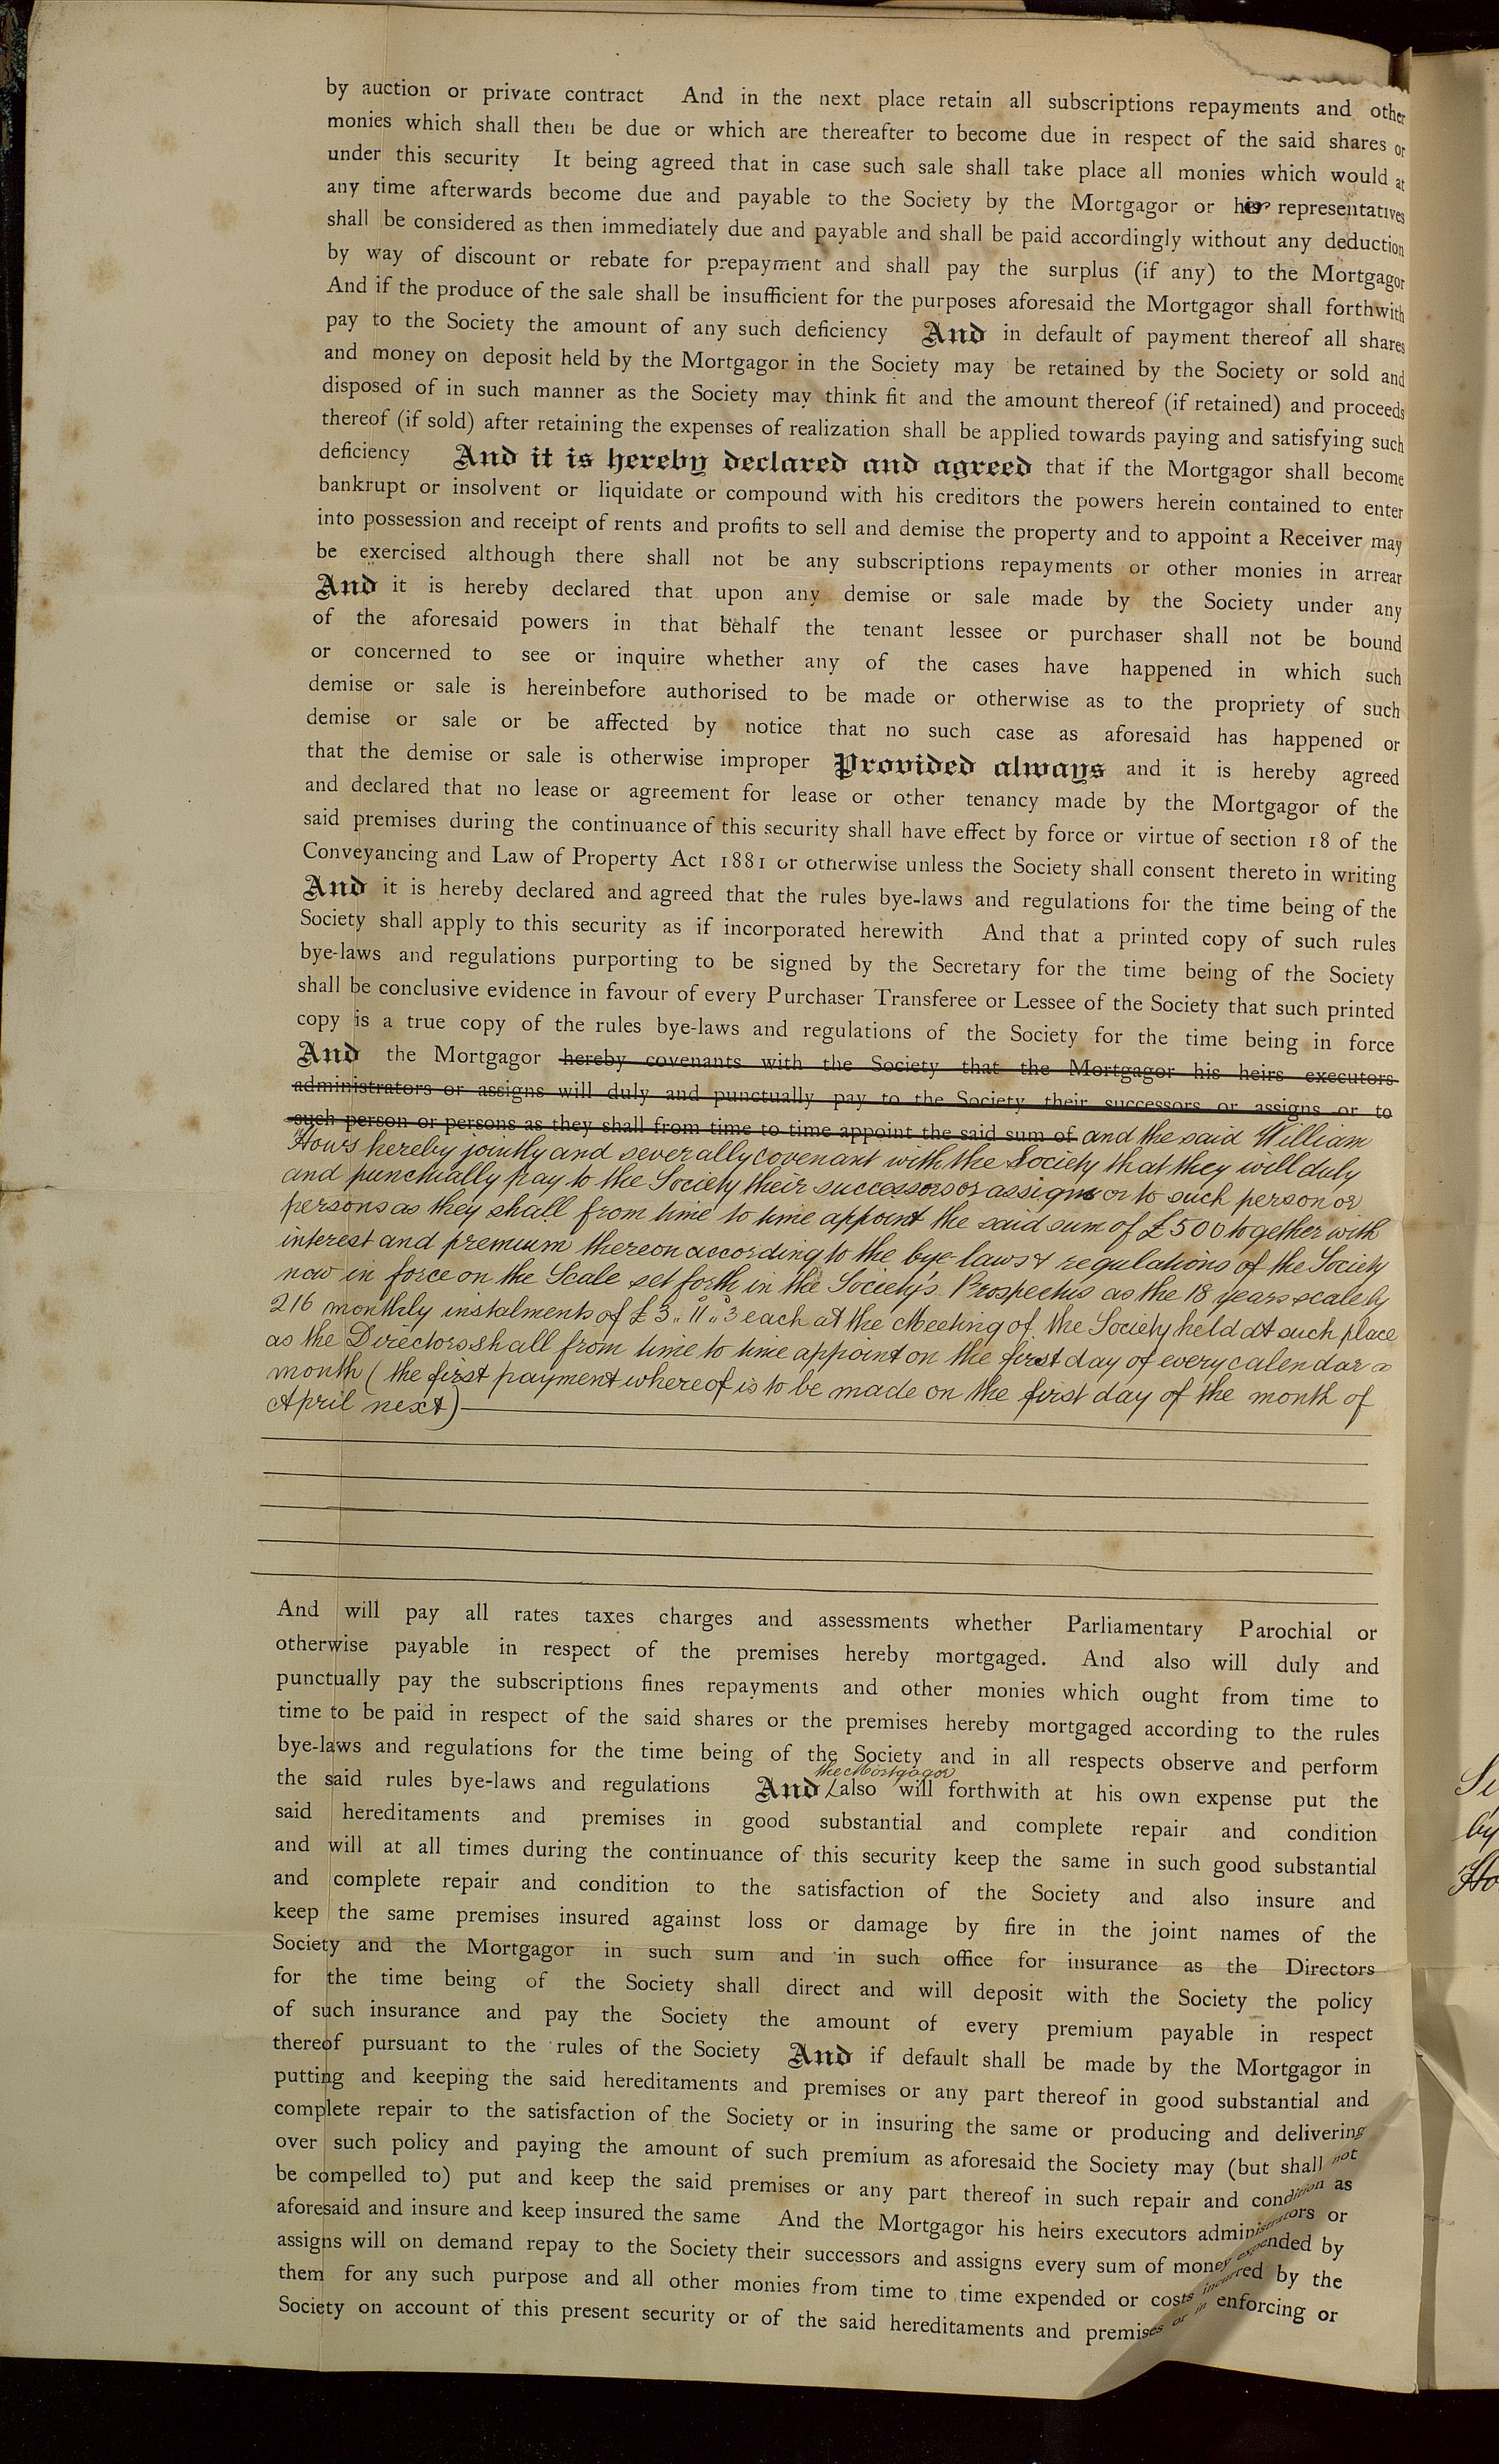 by auction or private contract And in the next place retain all subscriptions repayments and other
monies which shall then be due or which are thereafter to become due in respect of the said shares or
under this security It being agreed that in case such sale shall take place all monies which would at
any time afterwards become due and payable to the Society by the Mortgagor or her representatives
shall be considered as then immediately due and payable and shall be paid accordingly without any deduction
by way of discount or rebate for prepayment and shall pay the surplus (if any) to the Mortgagor
And if the produce of the sale shall be insufficient for the purposes aforesaid the Mortgagor shall forthwith
pay to the Society the amount of any such deficiency And in default of payment thereof all shares
and money on deposit held by the Mortgagor in the Society may be retained by the Society or sold and
disposed of in such manner as the Society may think fit and the amount thereof (if retained) and proceeds
thereof (if sold) after retaining the expenses of realization shall be applied towards paying and satisfying such
deficiency And it is hereby declared and agreed that if the Mortgagor shall become
bankrupt or insolvent or liquidate or compound with his creditors the powers herein contained to enter
into possession and receipt of rents and profits to sell and demise the property and to appoint a Receiver may
be exercised although there shall not be any subscriptions repayments or other monies in arrear
And it is hereby declared that upon any demise or sale made by the Society under any
of the aforesaid powers in that behalf the tenant lessee or purchaser shall not be bound
or concerned to see or inquire whether any of the cases have happened in which such
demise or sale is hereinbefore authorised to be made or otherwise as to the propriety of such
demise or sale or be affected by notice that no such case as aforesaid has happened or
that the demise or sale is otherwise improper Provided always and it is hereby agreed
and declared that no lease or agreement for lease or other tenancy made by the Mortgagor of the
said premises during the continuance of this security shall have effect by force or virtue of section 18 of the
Conveyancing and Law of Property Act 1881 or otherwise unless the Society shall consent thereto in writing
And it is hereby declared and agreed that the rules bye-laws and regulations for the time being of the
Society shall apply to this security as if incorporated herewith And that a printed copy of such rules
bye-laws and regulations purporting to be signed by the Secretary for the time being of the Society
shall be conclusive evidence in favour of every Purchaser Transferee or Lessee of the Society that such printed
copy is a true copy of the rules bye-laws and regulations of the Society for the time being in force
And the Mortgagor hereby covenants with the Society that the Mortgagor his heirs executors
administrators or assigns will duly and punctually pay to the Society their successors or assigns or to
such person or persons as they shall from time to time appoint the said sum of and the said William
Hows hereby jointly and severally covenant with the Society that they will duly
and punctually pay to the Society their successors or assigns or to such person or
persons as they shall from time to time appoint the said sum of £500 together with
interest and premium thereon according to the bye-laws & regulations of the Society
now in force on the Scale set forth in the Society's Prospectus as the 18 years scale by
216 monthly instalments of £3,, 11,, 3 each at the Meeting of the Society held at such place
as the Directors shall from time to time appoint on the first day of every calendar
month (the first payment whereof is to be made on the first day of the month of
April next)
And will pay all rates taxes charges and assessments whether Parliamentary Parochial or
otherwise payable in respect of the premises hereby mortgaged. And also will duly and
punctually pay the subscriptions fines repayments and other monies which ought from time to
time to be paid in respect of the said shares or the premises hereby mortgaged according to the rules
bye-laws and regulations for the time being of the Society and in all respects observe and perform
the Mortgagor
the said rules bye-laws and regulations And also will forthwith at his own expense put the
said hereditaments and premises in good substantial and complete repair and condition
and will at all times during the continuance of this security keep the same in such good substantial
and complete repair and condition to the satisfaction of the Society and also insure and
keep the same premises insured against loss or damage by fire in the joint names of the
Society and the Mortgagor in such sum and in such office for insurance as the Directors
for the time being of the Society shall direct and will deposit with the Society the policy
of such insurance and pay the Society the amount of every premium payable in respect
thereof pursuant to the rules of the Society And if default shall be made by the Mortgagor in
putting and keeping the said hereditaments and premises or any part thereof in good substantial and
complete repair to the satisfaction of the Society or in insuring the same or producing and delivering
over such policy and paying the amount of such premium as aforesaid the Society may (but shall not
be compelled to) put and keep the said premises or any part thereof in such repair and condition as
aforesaid and insure and keep insured the same And the Mortgagor his heirs executors administrators or
assigns will on demand repay to the Society their successors and assigns every sum of money expended by
them for any such purpose and all other monies from time to time expended or costs incurred by the
Society on account of this present security or of the said hereditaments and premises or in enforcing or
by